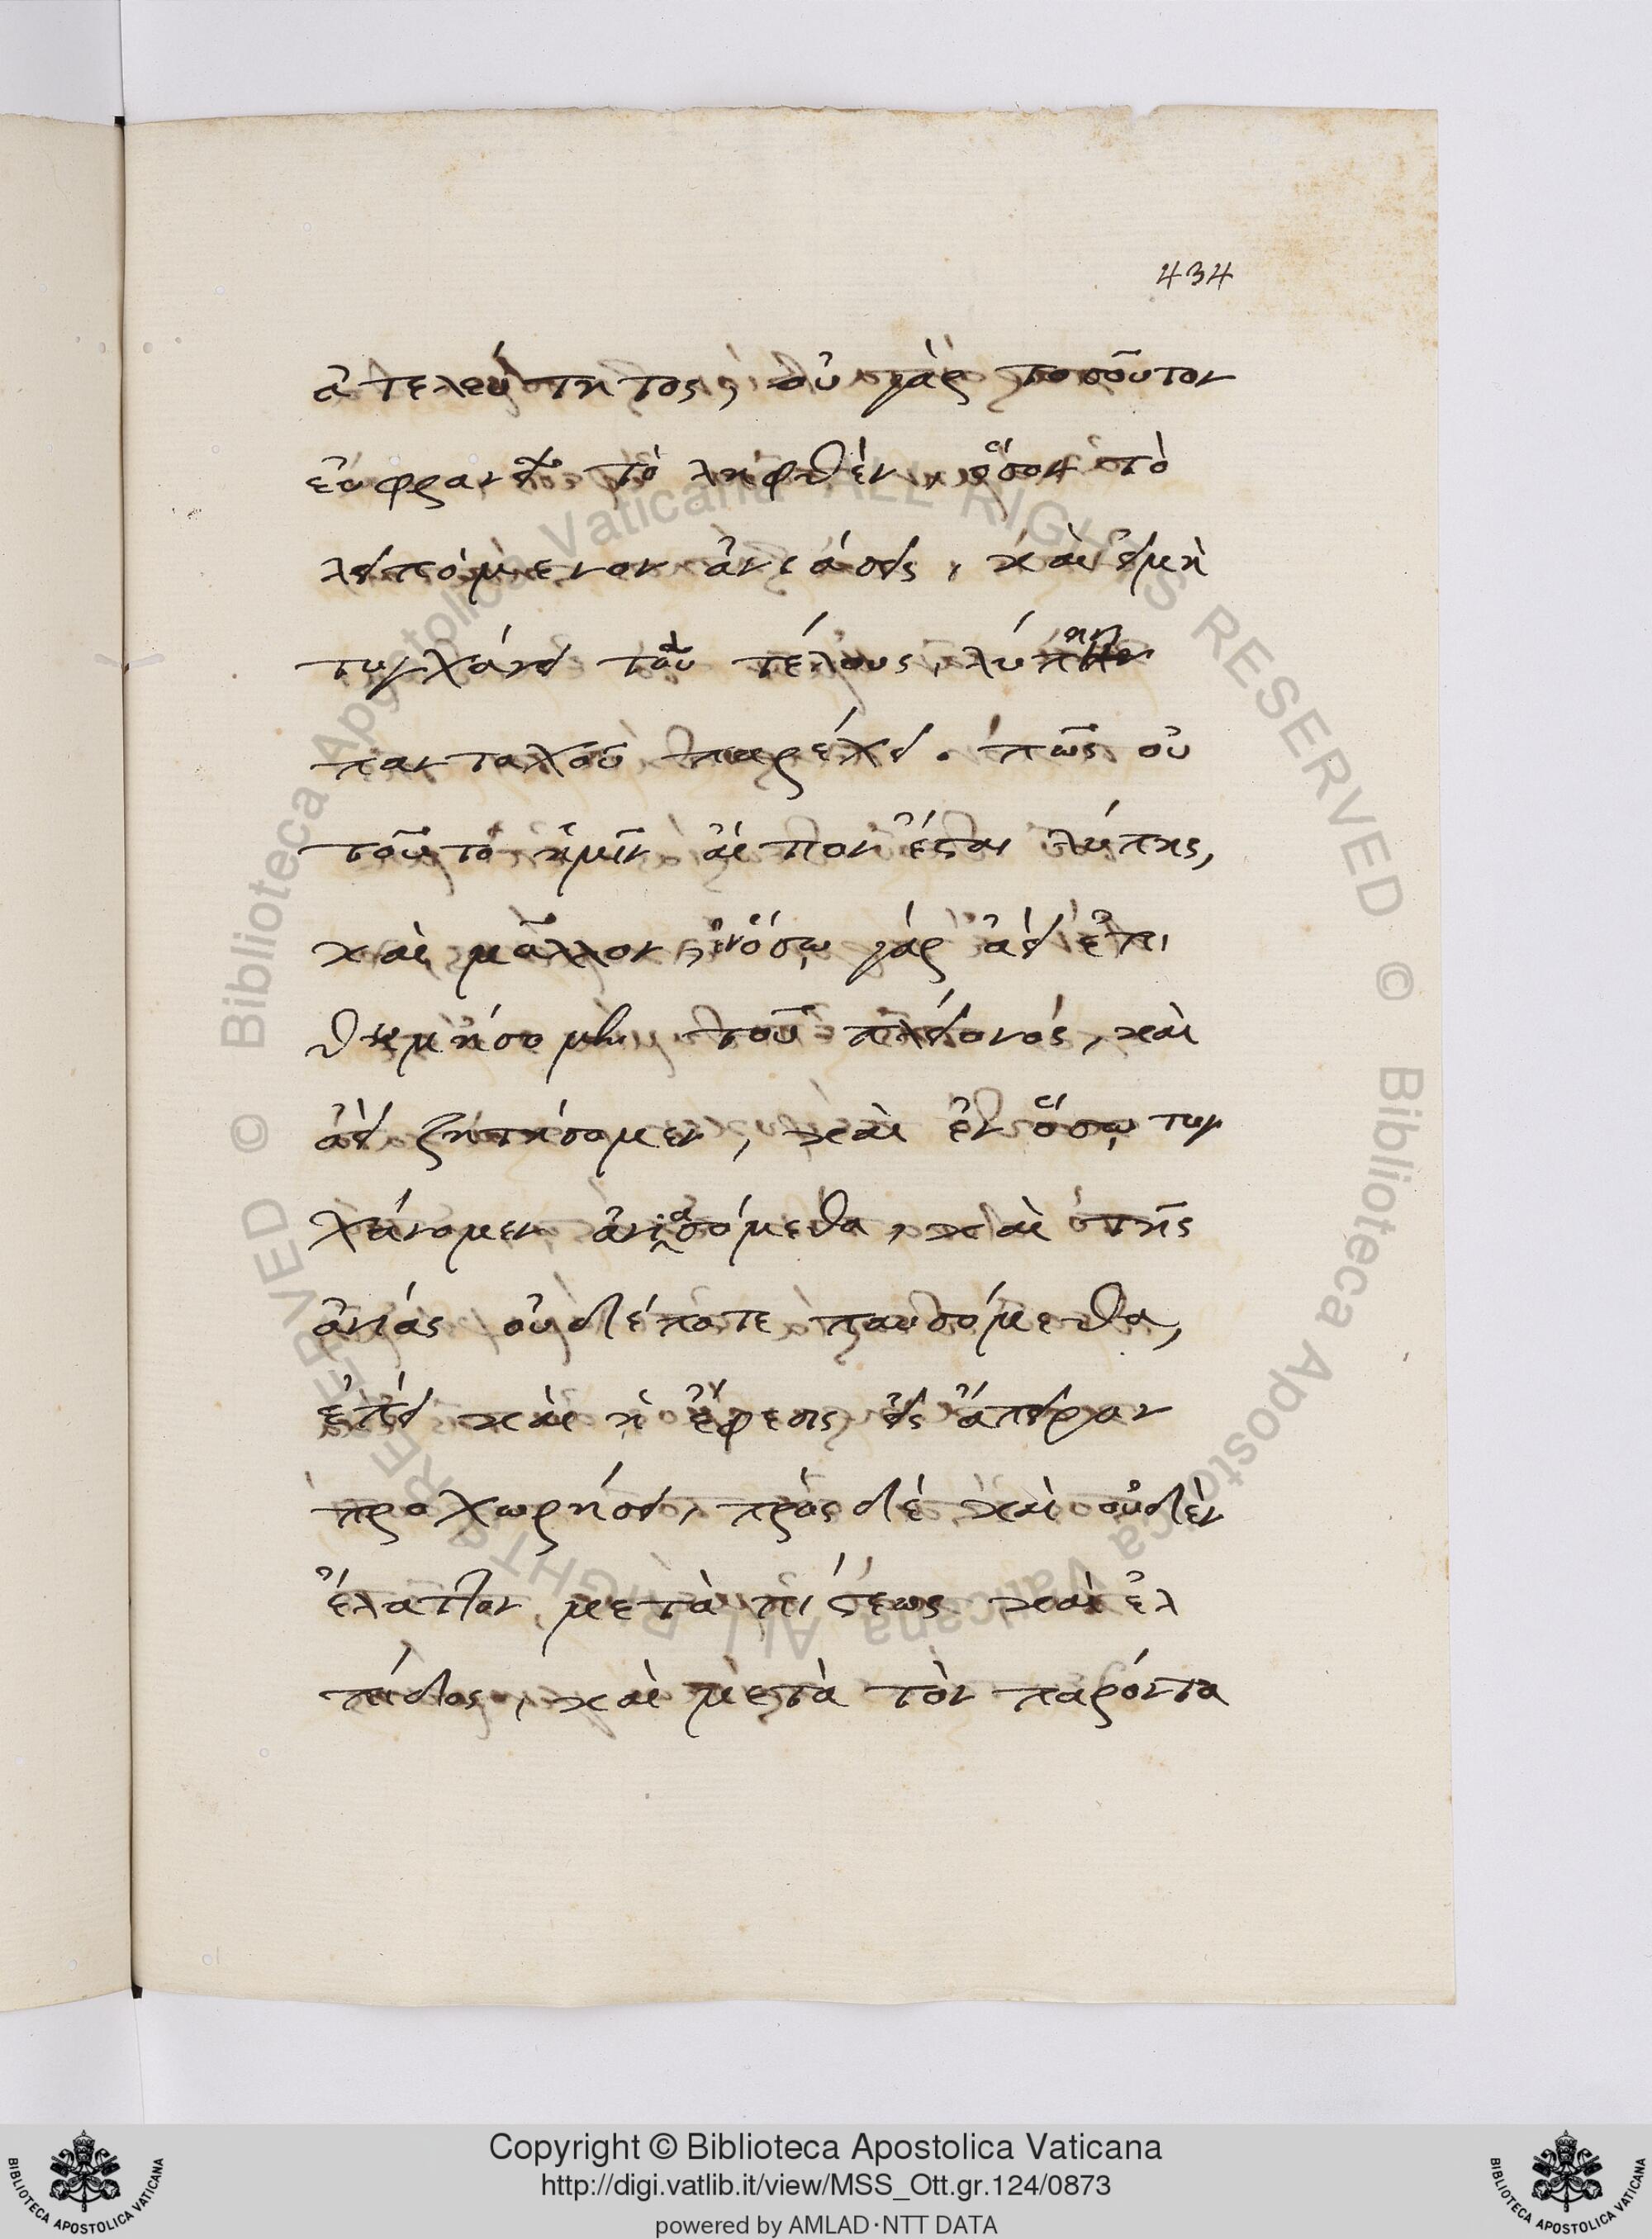 434
ἀτελεύτητος, οὐ γὰρ τοσοῦτον
εὐφρανεῖ τὸ ληφθὲν, ὅσον τὸ
λειπόμενον ἀνιάσει, καὶ εἰ μὴ
τυγχάνει τοῦ τέλους, λύπην
πανταχοῦ παρέχει. πῶς οὐ
τοῦτο ἡμῖν αἴτιον ἔσται λύπης,
καὶ μᾶλλον, ἐν ὅσῳ γάρ ἀεὶ ἐπι
θυμήσομεν τοῦ πλείονός, καὶ
ἀεὶ ζητήσομεν, καὶ ἐν ὅσῳ τυγ
χάνομεν ἀνιασόμεθα, καὶ τῆς
ἀνίας οὐδέποτε παυσόμεθα,
ἐπεὶ καὶ ἡ ἔφεσις εἰς ἄπειρον
προχωρήσει, πρὸς δέ καὶ οὐδὲν
ἔλαττον μετὰ πίστεως καὶ ἐλ
πίδος, καὶ μετὰ τὸν παρόντα
Copyright © Biblioteca Apostolica Vaticana
http://digi.vatlib.it/view/MSS_Ott.gr.124/0873
powered by AMLAD·NTT DATA
BIBLIOTECA APOSTOLICA VATICANA
BIBLIOTECA APOSTOLICA VATICANA
© Biblioteca Apostolica Vaticana ALL RIGHTS RESERVED
© Biblioteca Apostolica Vaticana ALL RIGHTS RESERVED